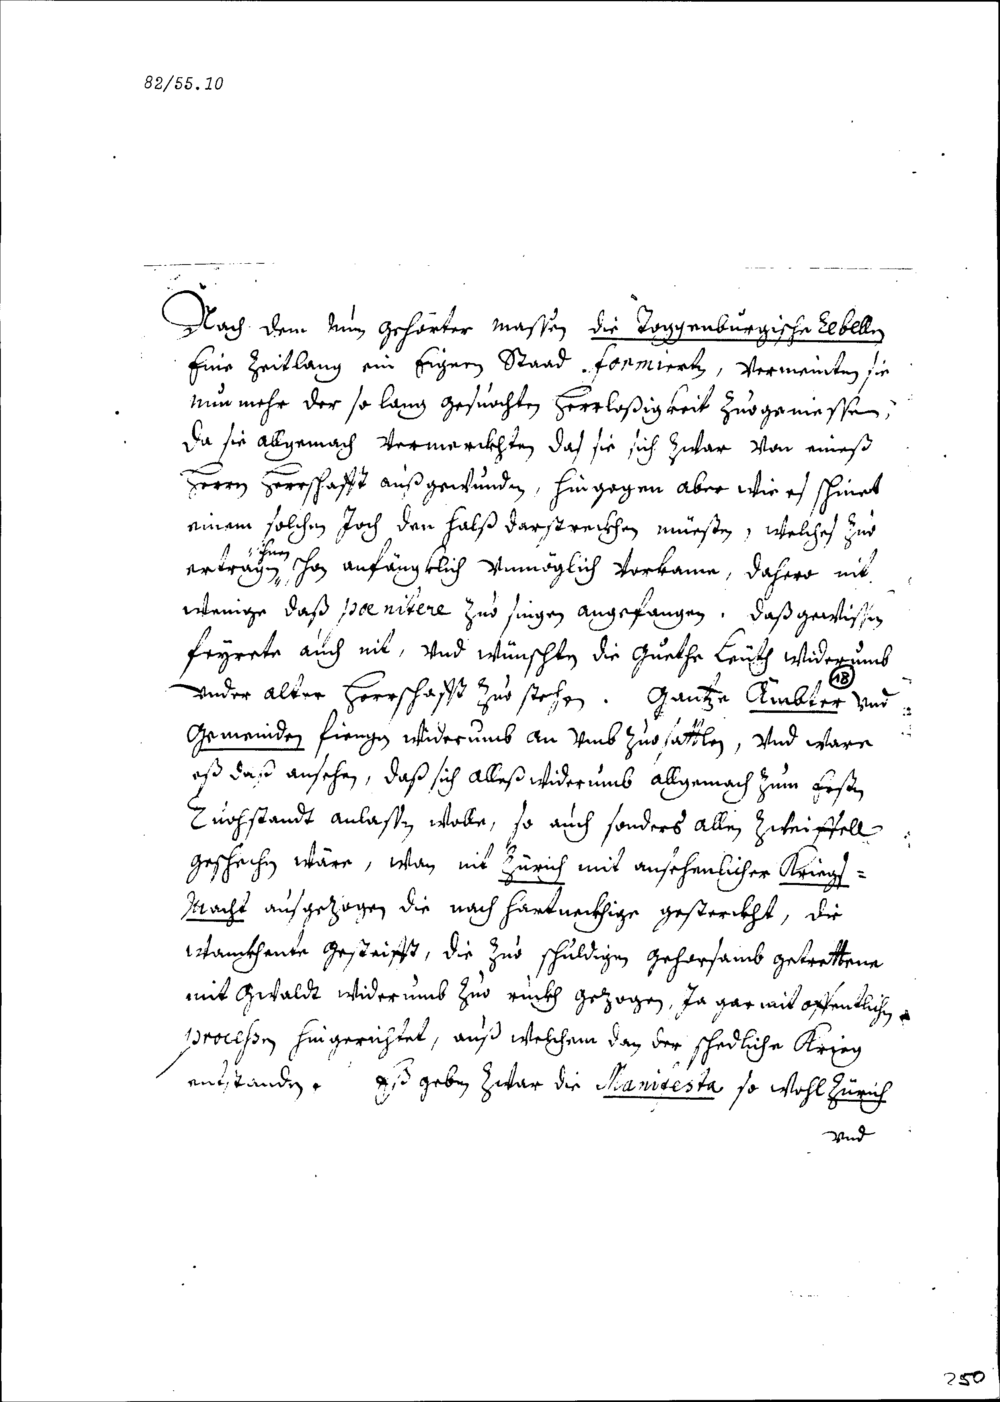 82/55.10
Nach dem nun gehörter massen die Toggenburgische Rebellen
Eine Zeitlang ein Eignen Staad formierten, vermeinten sie
nunmehr der so lang gesuochten Herrloßigkeit Zuo geniessen,
Da sie allgemach vermerckhten das sie sich zwar von eineß
Herren Herrschafft außgewunden, hingegen aber wie es schinet
einem solchen Joch den halß darstreckhen müesten, welches Zuo
ertragen ihnen schon anfängklich vnmöglich vorkame, dahero nit
wenige daß pœnitere Zuo singen angefangen. Daß gewissen
feyrete auch nit, vnd wünschten die Guethe Leüth widerumb
vnder alter Herrschafft Zuo stehen. Gantze Ämbter 18 vnd
Gemeinden fiengen widerumb an vmb Zuo sattlen, vnd ware
eß daß ansehen, daß sich alleß widerumb allgemach zum Ersten
Ruohstandt anlassen wolle, so auch sonders allen Zweiffell
geschechen wäre, wan nit Zürich mit ansehenlicher Kriegs=
Macht ausgezogen die noch hartneckhige gesterckht, die
wanckhente gesteifft, die Zuo schuldigen gehorsamb getrettene
mit Gwaldt widerumb Zuo ruckh gezogen, Ja gar mit offentlichen
processen hingerichtet, auß welchem dan der schedliche Krieg
entstanden. Eß geben zwar die Manifesta so wohl Zürich
vnd
250